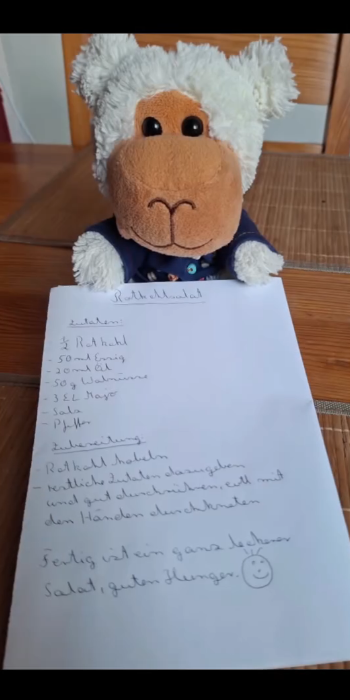 Rotkohlsalat
Zutaten:
½ Rotkohl
- 50ml Essig
- 20ml Öl
- 50g Walnüsse
- 3 EL Mayo
- Salz
- Pfeffer
Zubereitung
- Rotkohl hobeln
- restliche Zutaten dazugeben
und gut durchrühren, evtl mit
den Händen durchkneten
Fertig ist ein ganz leckerer
Salat, guten Hunger.